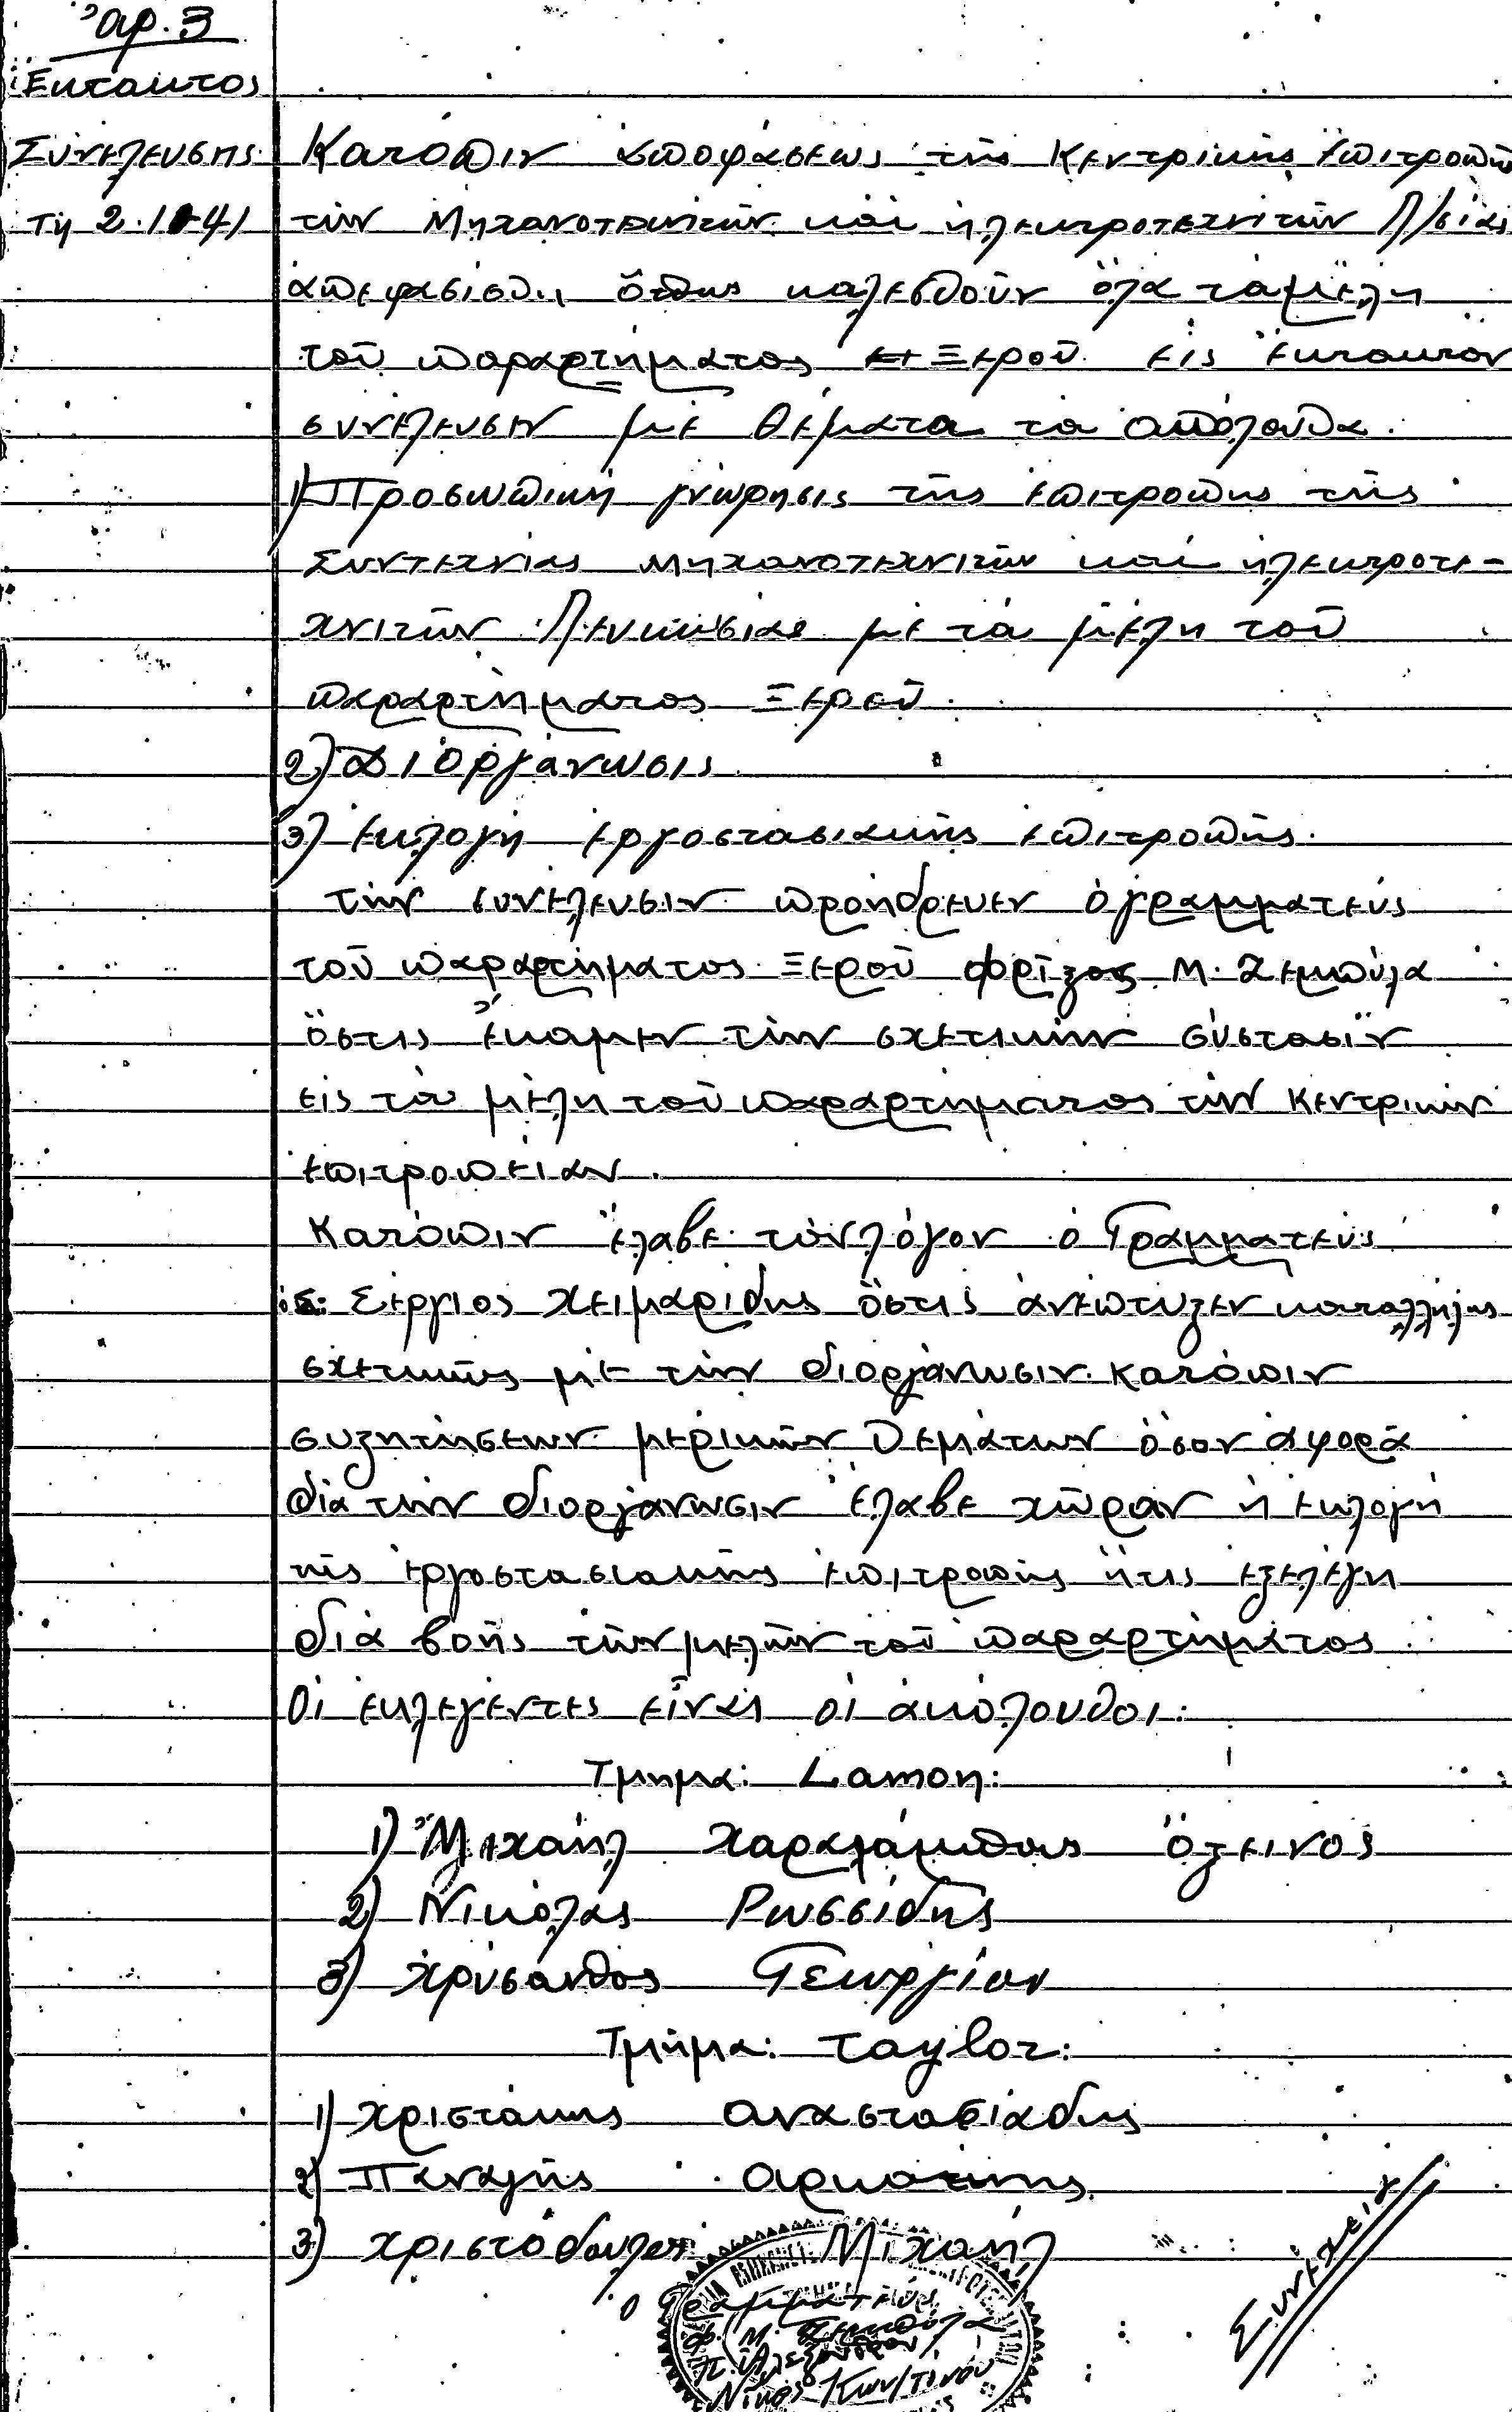 Ἀρ. 3
Ἔκτακτος
Συνέλευσης
Τῇ 2.10-41
Κατόπιν ἀποφάσεως τῆς Κεντρικῆς Ἐπιτροπῆς
τῶν Μηχανοτεχνιτῶν καὶ ἡλεκτροτεχνιτῶν Λ/σίας
ἀπεφασίσθη ὅπως καλεσθοῦν ὅλα τὰ μέλη
τοῦ παραρτήματος Ξεροῦ εἰς ἔκτακτον
συνέλευσιν μὲ θέματα τὰ ἀκόλουθα.
1) Προσωπικὴ γνώρησις τῆς ἐπιτροπῆς τῆς
Συντεχνίας μηχανοτεχνιτῶν καὶ ἡλεκτροτε-
χνιτῶν Λευκωσίας μὲ τὰ μέλη τοῦ
παραρτήματος Ξεροῦ.
2) Διοργάνωσις
3) Ἐκλογὴ ἐργοστασιακῆς ἐπιτροπῆς.
τὴν συνέλευσιν προήδρευεν ὁ γραμματεύς
τοῦ παραρτήματος Ξεροῦ Φρῖξος Μ. Ζεμπύλα
ὅστις ἔκαμεν τὴν σχετικὴν σύστασιν
εἰς τὰ μέλη τοῦ παραρτήματος τὴν Κεντρικὴν
ἐπιτροπείαν.
Κατόπιν ἔλαβε τὸν λόγον ὁ Γραμματεύς
Σέργιος Χειμαρίδης ὅστις ἀνέπτυξεν καταλλήλως
σχετικῶς μὲ τὴν διοργάνωσιν. Κατόπιν
συζητήσεων μερικῶν θεμάτων ὅσον ἀφορᾶ
διὰ τὴν διοργάνωσιν ἔλαβε χῶραν ἡ ἐκλογὴ
τῆς ἐργοστασιακῆς ἐπιτροπῆς ἥτις ἐξελέγη
διὰ βοῆς τῶν μελῶν τοῦ παραρτήματος.
Οἱ ἐκλεγέντες εἶναι οἱ ἀκόλουθοι:
Τμημα: Lamon:
1) Μιχαήλ Χαραλάμπους
2) Νικόλας Ρωσσίδης
3) Χρύσανθος Γεωργίου
Τμῆμα: Taylor:
1) Χριστάκης Αναστασιάδης
2) Παναγῆς
3) Χριστόδουλος Μιχαήλ
Ὁ Γραμματεύς
Φ. Μ. Ζεμπύλα
Π. Ἀλεξάνδρου
Νίκος Κων/τίνου
Συνέχεια